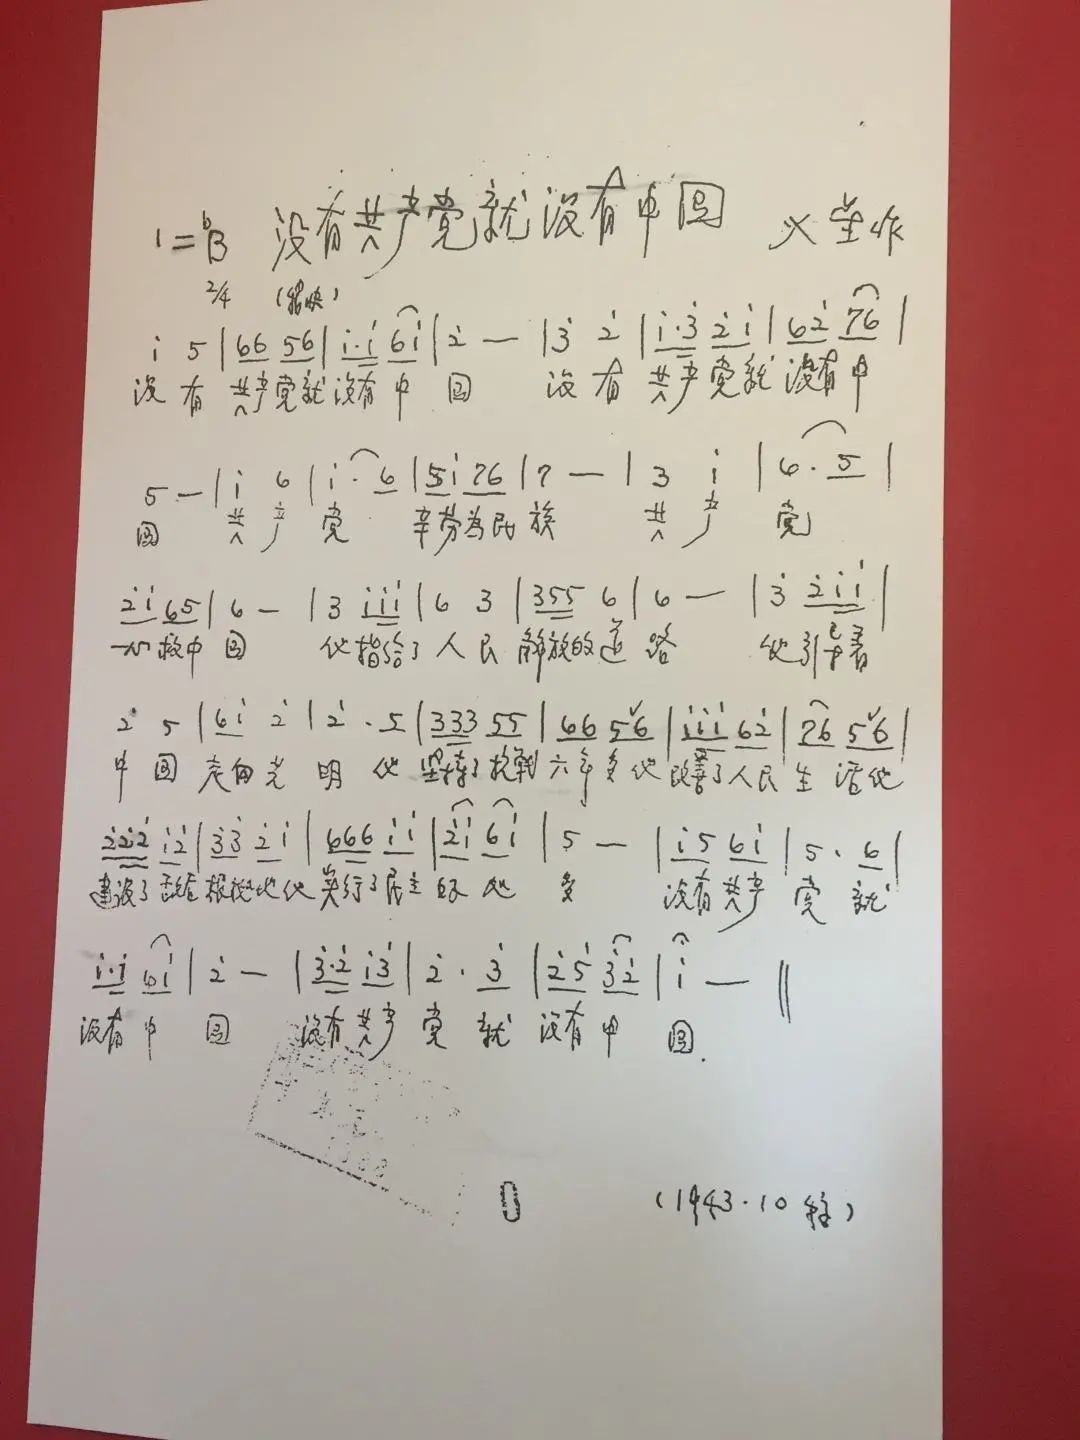 1=♭B 没有共产党就没有中国 火星作
2/4 (稍快)
i 5 | 66 56 | i·i 6i | 2̇ — | 3̇ 2̇ | i·3̇ 2̇i | 62̇ 76 |
没有共产党就没有中国 没有共产党就没有中
5 — | i 6 | i·6 | 5i 76 | 7 — | 3 i | 6·5 |
国 共产党 辛劳为民族 共产党
2̇i 65 | 6 — | 3 iii | 6 3 | 355 6 | 6 — | 3̇ 2̇ii |
一心救中国 他指给了人民解放的道路 他引导着
2̇ 5 | 6i 2̇ | 2̇·5 | 333 55 | 66 5ˇ6 | iii 62̇ | 76 5ˇ6 |
中国走向光明 他坚持了抗战六年多他改善了人民生活他
2̇2̇2̇ i2̇ | 3̇3̇ 2̇i | 666 ii | 2̇i 6i | 5 — | i5 6i | 5·6 |
建设了敌后根据地他实行了民主好处多 没有共产党就
i·i 6i | 2̇ — | 3̇·2̇ i3̇ | 2̇·3̇ | 2̇5 3̇2̇ | i — ‖
没有中国 没有共产党就没有中国.
(1943·10 )